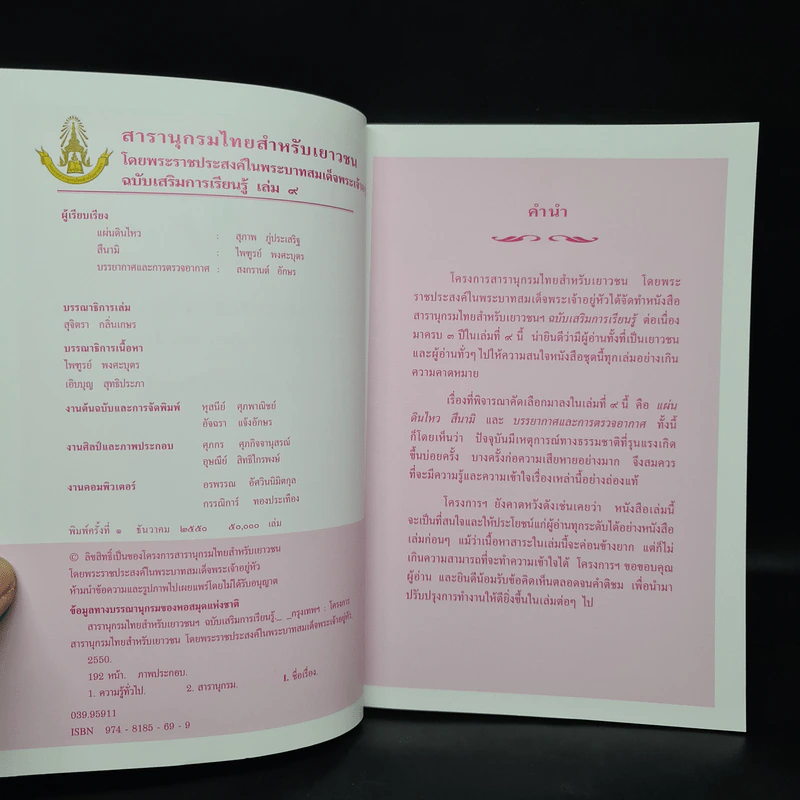 สารานุกรมไทยสำหรับเยาวชน
โดยพระราชประสงค์ในพระบาทสมเด็จพระเจ้าอยู่
ฉบับเสริมการเรียนรู้ เล่ม ๙
ผู้เรียบเรียง
แผ่นดินไหว : สุภาพ ภู่ประเสริฐ
สึนามิ : ไพฑูรย์ พงศะบุตร
บรรยากาศและการตรวจอากาศ : สงกรานต์ อักษร
บรรณาธิการเล่ม
สุจิตรา กลิ่นเกษร
บรรณาธิการเนื้อหา
ไพฑูรย์ พงศะบุตร
เอิบบุญ สุทธิประภา
งานต้นฉบับและการจัดพิมพ์ หุสนีย์ ศุภพาณิชย์
อัจฉรา แจ้งอักษร
งานศิลป์และภาพประกอบ ศุภกร ศุภกิจจานุสรณ์
อุษณีย์ สิทธิไกรพงษ์
งานคอมพิวเตอร์ อรพรรณ อัศวินนิมิตกุล
กรรณิการ์ ทองประเทือง
พิมพ์ครั้งที่ ๑ ธันวาคม ๒๕๕๐ ๕๐,๐๐๐ เล่ม
© ลิขสิทธิ์เป็นของโครงการสารานุกรมไทยสำหรับเยาวชน
โดยพระราชประสงค์ในพระบาทสมเด็จพระเจ้าอยู่หัว
ห้ามนำข้อความและรูปภาพไปเผยแพร่โดยไม่ได้รับอนุญาต
ข้อมูลทางบรรณานุกรมของหอสมุดแห่งชาติ
สารานุกรมไทยสำหรับเยาวชนฯ ฉบับเสริมการเรียนรู้._ _กรุงเทพฯ : โครงการ
สารานุกรมไทยสำหรับเยาวชน โดยพระราชประสงค์ในพระบาทสมเด็จพระเจ้าอยู่หัว
2550.
192 หน้า. ภาพประกอบ.
1. ความรู้ทั่วไป. 2. สารานุกรม. I. ชื่อเรื่อง.
039.95911
ISBN 974 - 8185 - 69 - 9
คำนำ
โครงการสารานุกรมไทยสำหรับเยาวชน โดยพระ
ราชประสงค์ในพระบาทสมเด็จพระเจ้าอยู่หัวได้จัดทำหนังสือ
สารานุกรมไทยสำหรับเยาวชนฯ ฉบับเสริมการเรียนรู้ ต่อเนื่อง
มาครบ ๓ ปีในเล่มที่ ๙ นี้ น่ายินดีว่ามีผู้อ่านทั้งที่เป็นเยาวชน
และผู้อ่านทั่วๆ ไปให้ความสนใจหนังสือชุดนี้ทุกเล่มอย่างเกิน
ความคาดหมาย
เรื่องที่พิจารณาคัดเลือกมาลงในเล่มที่ ๙ นี้ คือ แผ่น
ดินไหว สึนามิ และ บรรยากาศและการตรวจอากาศ ทั้งนี้
ก็โดยเห็นว่า ปัจจุบันมีเหตุการณ์ทางธรรมชาติที่รุนแรงเกิด
ขึ้นบ่อยครั้ง บางครั้งก่อความเสียหายอย่างมาก จึงสมควร
ที่จะมีความรู้และความเข้าใจเรื่องเหล่านี้อย่างถ่องแท้
โครงการฯ ยังคาดหวังดังเช่นเคยว่า หนังสือเล่มนี้
จะเป็นที่สนใจและให้ประโยชน์แก่ผู้อ่านทุกระดับได้อย่างหนังสือ
เล่มก่อนๆ แม้ว่าเนื้อหาสาระในเล่มนี้จะค่อนข้างยาก แต่ก็ไม่
เกินความสามารถที่จะทำความเข้าใจได้ โครงการฯ ขอขอบคุณ
ผู้อ่าน และยินดีน้อมรับข้อคิดเห็นตลอดจนคำติชม เพื่อนำมา
ปรับปรุงการทำงานให้ดียิ่งขึ้นในเล่มต่อๆ ไป